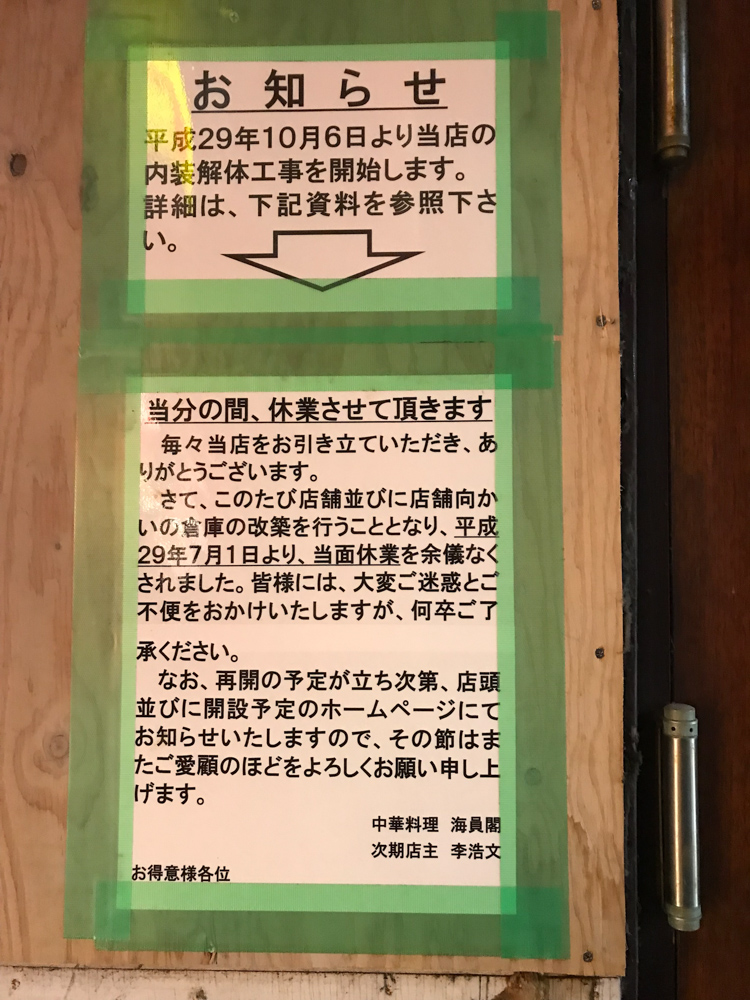 お知らせ
平成29年10月6日より当店の
内装解体工事を開始します。
詳細は、下記資料を参照下さ
い。
当分の間、休業させて頂きます
毎々当店をお引き立ていただき、あ
りがとうございます。
さて、このたび店舗並びに店舗向か
いの倉庫の改築を行うこととなり、平成
29年7月1日より、当面休業を余儀なく
されました。皆様には、大変ご迷惑とご
不便をおかけいたしますが、何卒ご了
承ください。
なお、再開の予定が立ち次第、店頭
並びに開設予定のホームページにて
お知らせいたしますので、その節はま
たご愛顧のほどをよろしくお願い申し上
げます。
中華料理 海員閣
次期店主 李浩文
お得意様各位